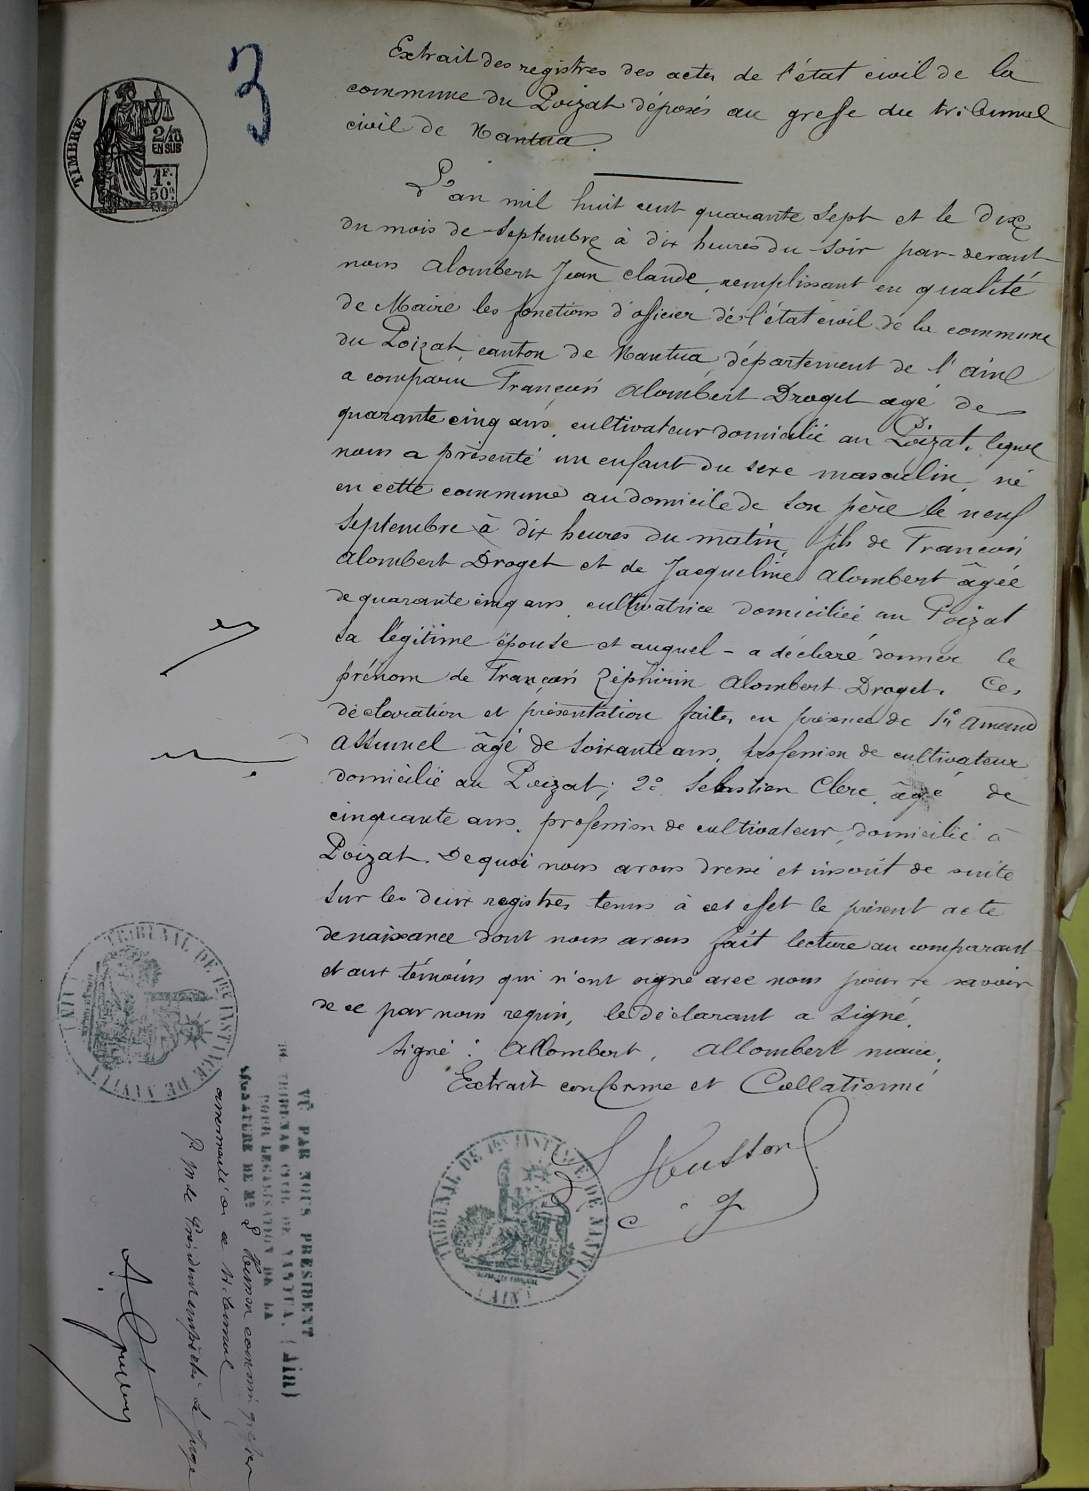 3
TIMBRE
2/10
EN SUB
1F.
50c
Extrait des registres des actes de l'état civil de la
commune du Poizat déposés au greffe du tribunal
civil de Nantua.
L'an mil huit cent quarante sept et le dix
du mois de Septembre à dix heures du soir par-devant
nous Alombert Jean Claude, remplissant en qualité
de Maire les fonctions d'oficier de l'état civil de la commune
du Poizat, canton de Nantua, département de l'Ain
a comparu François Alombert Droget agé de
quarante cinq ans, cultivateur domicilié au Poizat, lequel
nous a présenté un enfant du sexe masculin, né
en cette commune au domicile de son père le neuf
Septembre à dix heures du matin, fils de François
Alombert Droget et de Jacqueline Alombert âgée
de quarante cinq ans, cultivatrice domiciliée au Poizat
sa légitime épouse et auquel - a déclaré donner le
prénom de François Zéphirin Alombert Droget. Ces
déclaration et présentation faites en présence de 1° Amand
Assumel âgé de soixante ans, profession de cultivateur
domicilié au Poizat; 2° Sebastien Clerc, âgé de
cinquante ans, profession de cultivateur, domicilié à
Poizat. De quoi nous avons dressé et inscrit de suite
sur les deux registres tenus à cet effet le présent acte
de naissance dont nous avons fait lecture au comparant
et aux témoins qui n'ont signé avec nous pour ne savoir
de ce par nous requis, le déclarant a signé.
Signé : Allombert, Allombert maire.
Extrait conforme et Collationné
Husson
c. g
TRIBUNAL DE 1RE INSTANCE DE NANTUA
(AIN)
TRIBUNAL DE 1RE INSTANCE DE NANTUA
(AIN)
VU PAR NOUS PRESIDENT
DU TRIBUNAL CIVIL DE NANTUA. (Ain)
POUR LEGALISATION DE LA
SIGNATURE DE Mr P Husson commis greffier
assermenté de ce tribunal
Pr Mr le Président empêché le Juge